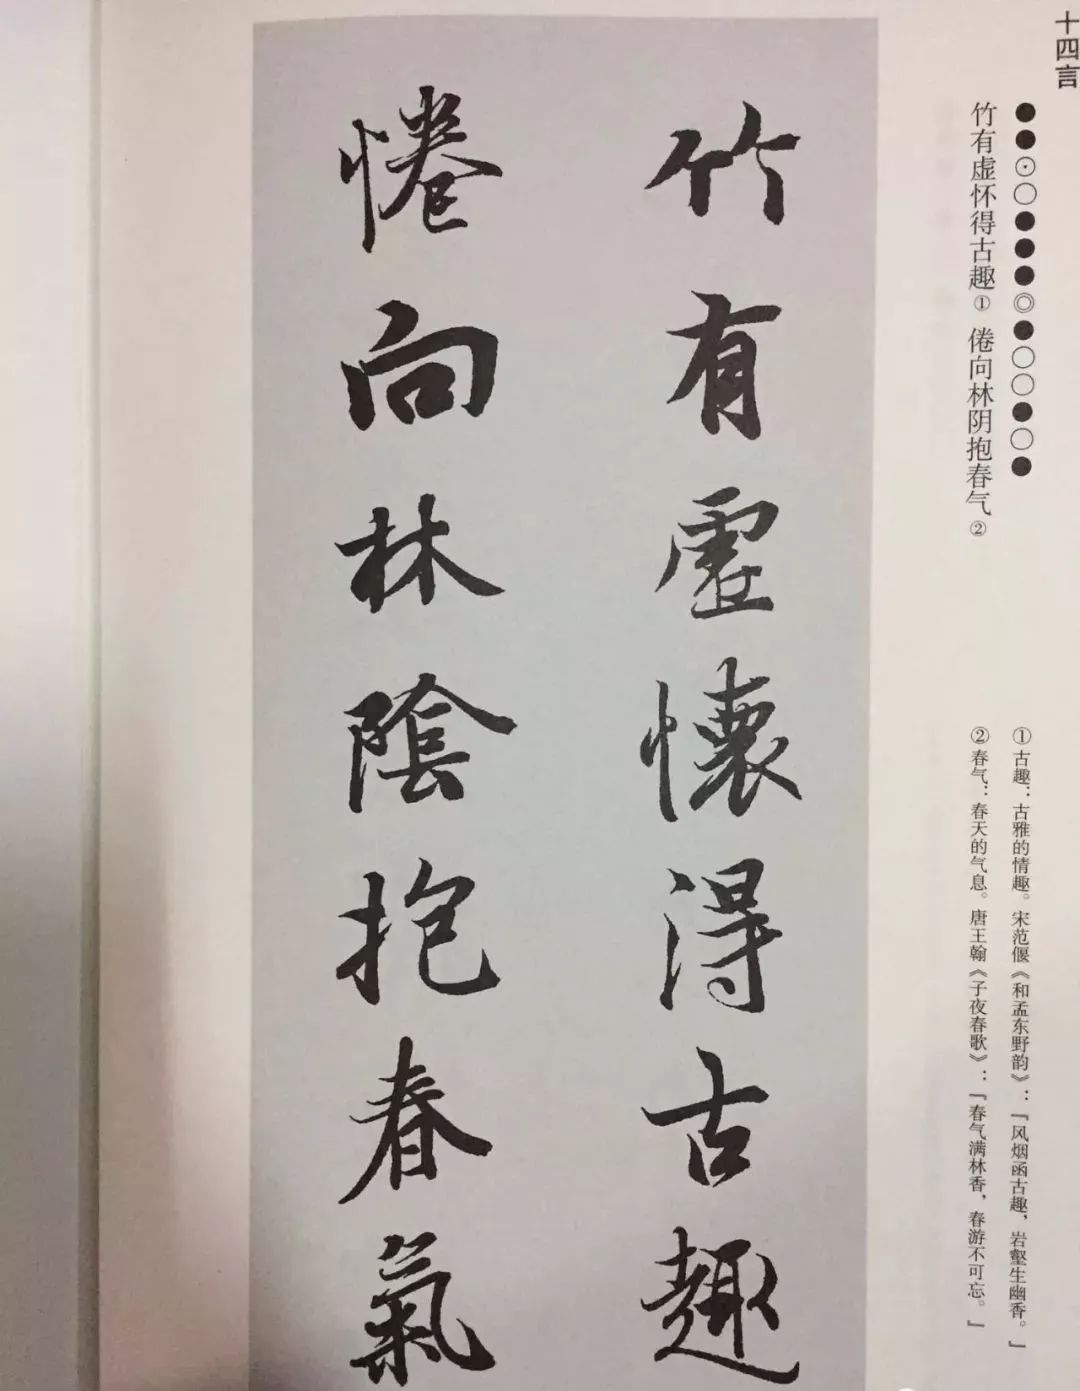 十四言
●●⊙○●●●◎●○○●○●
竹有虚怀得古趣① 倦向林阴抱春气②
①古趣：古雅的情趣。宋范偃《和孟东野韵》：「风烟函古趣，岩壑生幽香。」
②春气：春天的气息。唐王翰《子夜春歌》：「春气满林香，春游不可忘。」
竹有虛懷得古趣
惓向林陰抱春氣